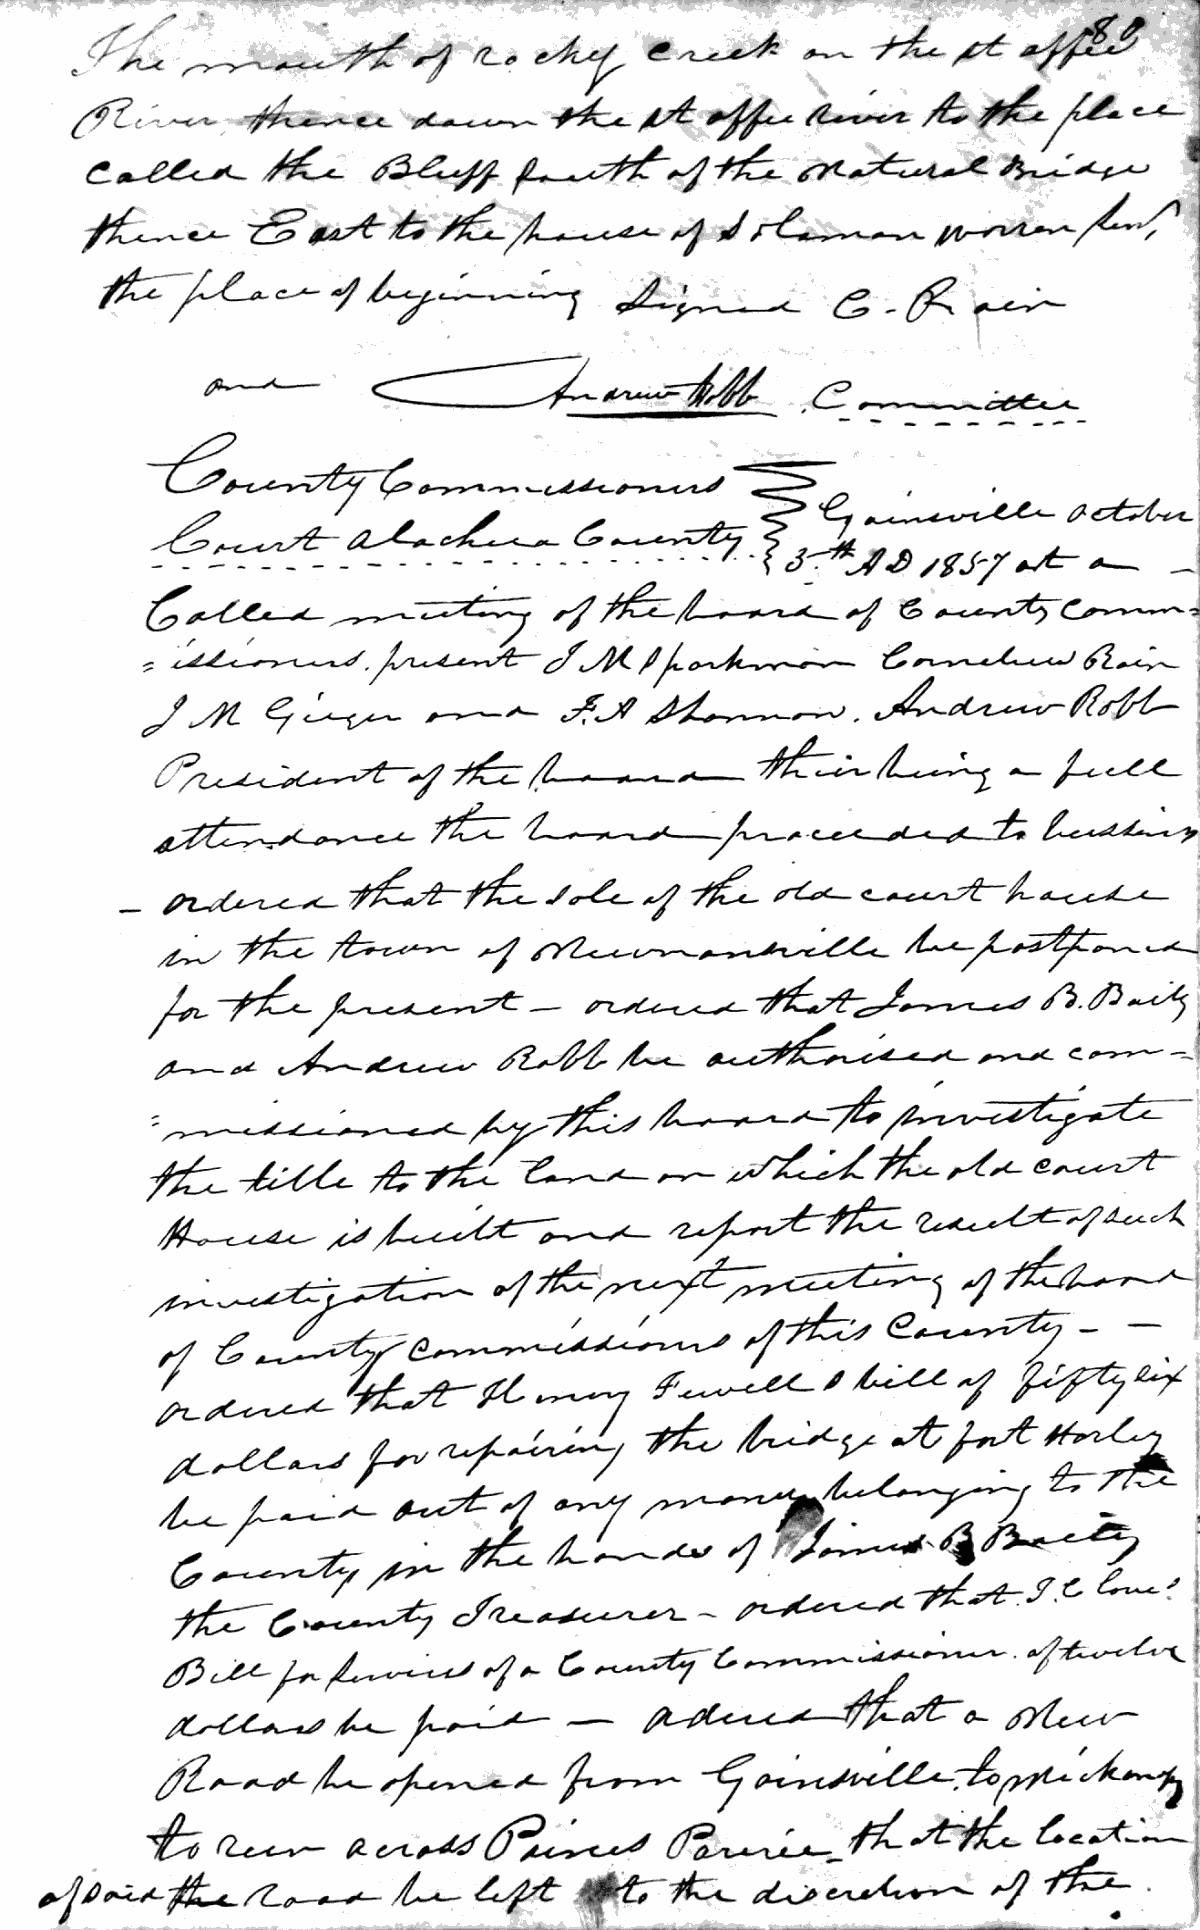 80
The mouth of rocky creek on the st affee
River thence down the st affee river to the place
Called the Bluff south of the Natural Bridge
thence East to the house of Solaman worren Senr
the place of beginning Signed C. Rain
and Andrew Robb Committee
County Commissioners
Court Alachua County
Gainsville October
5th AD 1857 at a –
Called meeting of the board of County Comm=
=issioners. present J M Sparkman Cornelius Rain
J M Gieger and F. A Shannon. Andrew Robb
President of the board their being a full
attendance the board proceeded to bussiness
– ordered that the sale of the old court house
in the town of Newnansville be postponed
for the present – ordered that James B. Baily
and Andrew Robb be authorised and com–=
=missioned by this board to investigate
the title to the land on which the old court
House is built and report the result of such
investigation of the next meeting of the board
of County commissioners of this County – –
ordered that Henry Fewells bill of fifty six
dollars for repairing the bridge at fort Harley
be paid out of any money belonging to the
County in the hands of James B Baily
the County Treasurer – ordered that J. C Loves
Bill for Services of a County Commissioner. of twelve
dollars be paid – ordered that a New
Road be opened from Gainsville to Mickanopy
to run across Paines Parerie – that the location
of said the road be left to the discretion of the